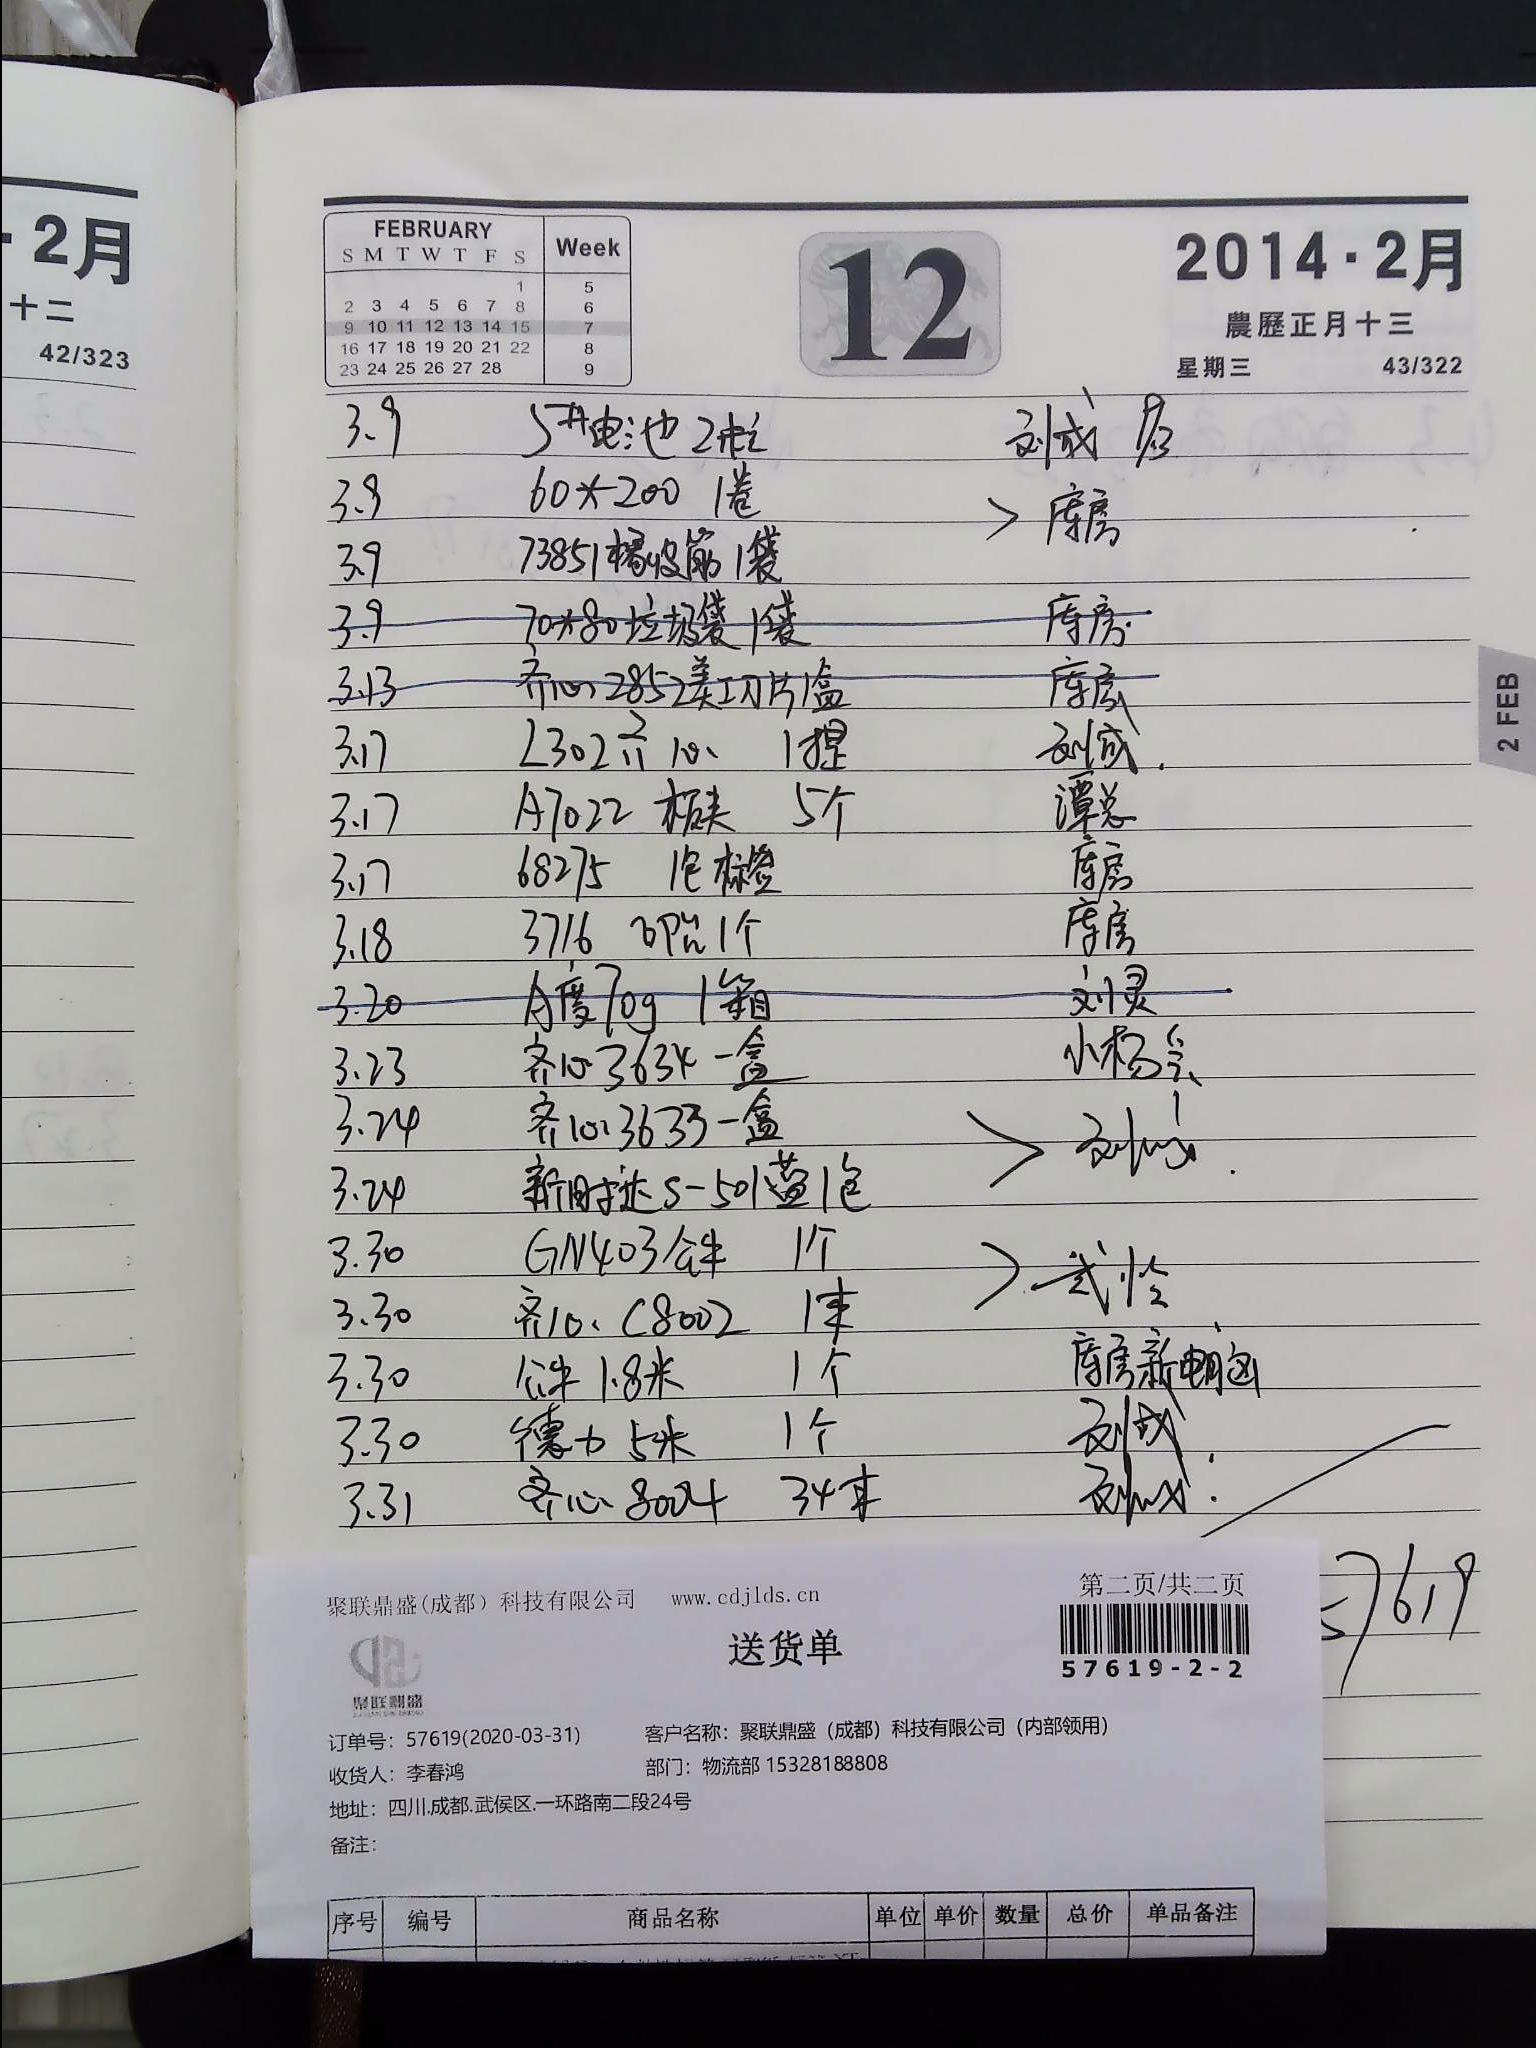 2月
十二
42/323
FEBRUARY Week
S M T W T F S
1 5
2 3 4 5 6 7 8 6
9 10 11 12 13 14 15 7
16 17 18 19 20 21 22 8
23 24 25 26 27 28 9
12
2014·2月
農歷正月十三
星期三 43/322
2 FEB
3.9 5#电池2 刘成
3.9 60*200 1卷 > 库房
3.9 73851橡皮筋1袋
3.9 70*80垃圾袋1袋 库房
3.13 齐心2852美工刀片1盒 库房
3.17 L302齐心 1提 刘成
3.17 A7022 板夹 5个 潭总
3.17 68275 1包标签 库房
3.18 3716 印台1个 库房
3.20 A度70g 1箱 刘灵
3.23 齐心3634一盒 小杨
3.24 齐心3633一盒 > 刘成
3.24 新时达S-501蓝1包
3.30 GN403公牛 1个 >
3.30 齐心C8002 1本
3.30 公牛1.8米 1个 库房新
3.30 德力5米 1个 刘成
3.31 齐心8004 34本 刘成
57619
聚联鼎盛(成都)科技有限公司 www.cdjlds.cn 第二页/共二页
聚联鼎盛
送货单
57619-2-2
订单号：57619(2020-03-31) 客户名称：聚联鼎盛（成都）科技有限公司（内部领用）
收货人：李春鸿 部门：物流部 15328188808
地址：四川.成都.武侯区.一环路南二段24号
备注：
序号 编号 商品名称 单位 单价 数量 总价 单品备注